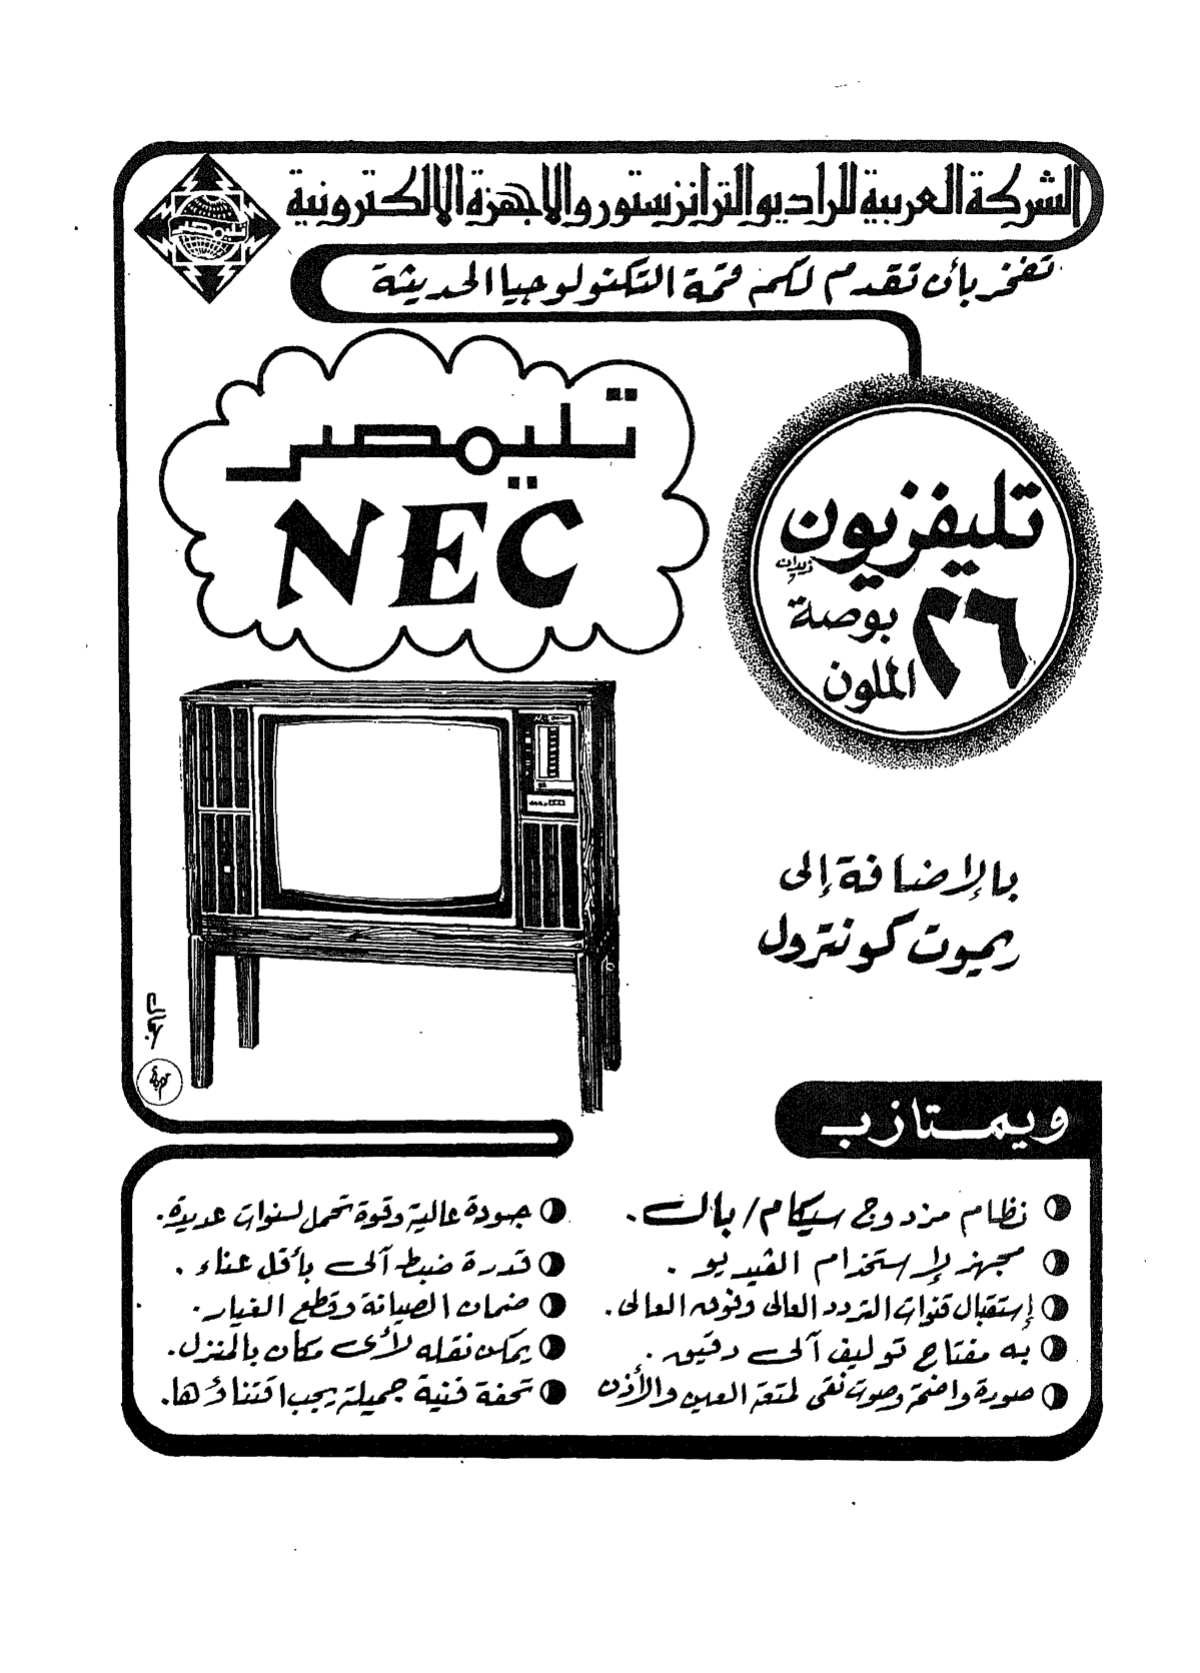 الشركة العربية للراديو الترانزستور والاجهزة الالكترونية
تليمصر
تفخر بأن تقدم لكم قمة التكنولوجيا الحديثة
تليمصر
NEC
تليفزيون
زيدان
٢٦ بوصة
الملون
بالإضافة إلى
ريموت كونترول
جمال
ويمتاز ب
نظام مزدوج سيكام / بال .
مجهز لإستخدام الفيديو .
إستقبال قنوات التردد العالى وفوق العالى .
به مفتاح توليف آلى دقيق .
صورة واضحة وصوت نقى لمتعة العين والأذن
جودة عالية وقوة تحمل لسنوات عديدة .
قدرة ضبط آلى بأقل عناء .
ضمان الصيانة وقطع الغيار .
يمكن نقله لأى مكان بالمنزل .
تحفة فنية جميلة يجب اقتناؤها .